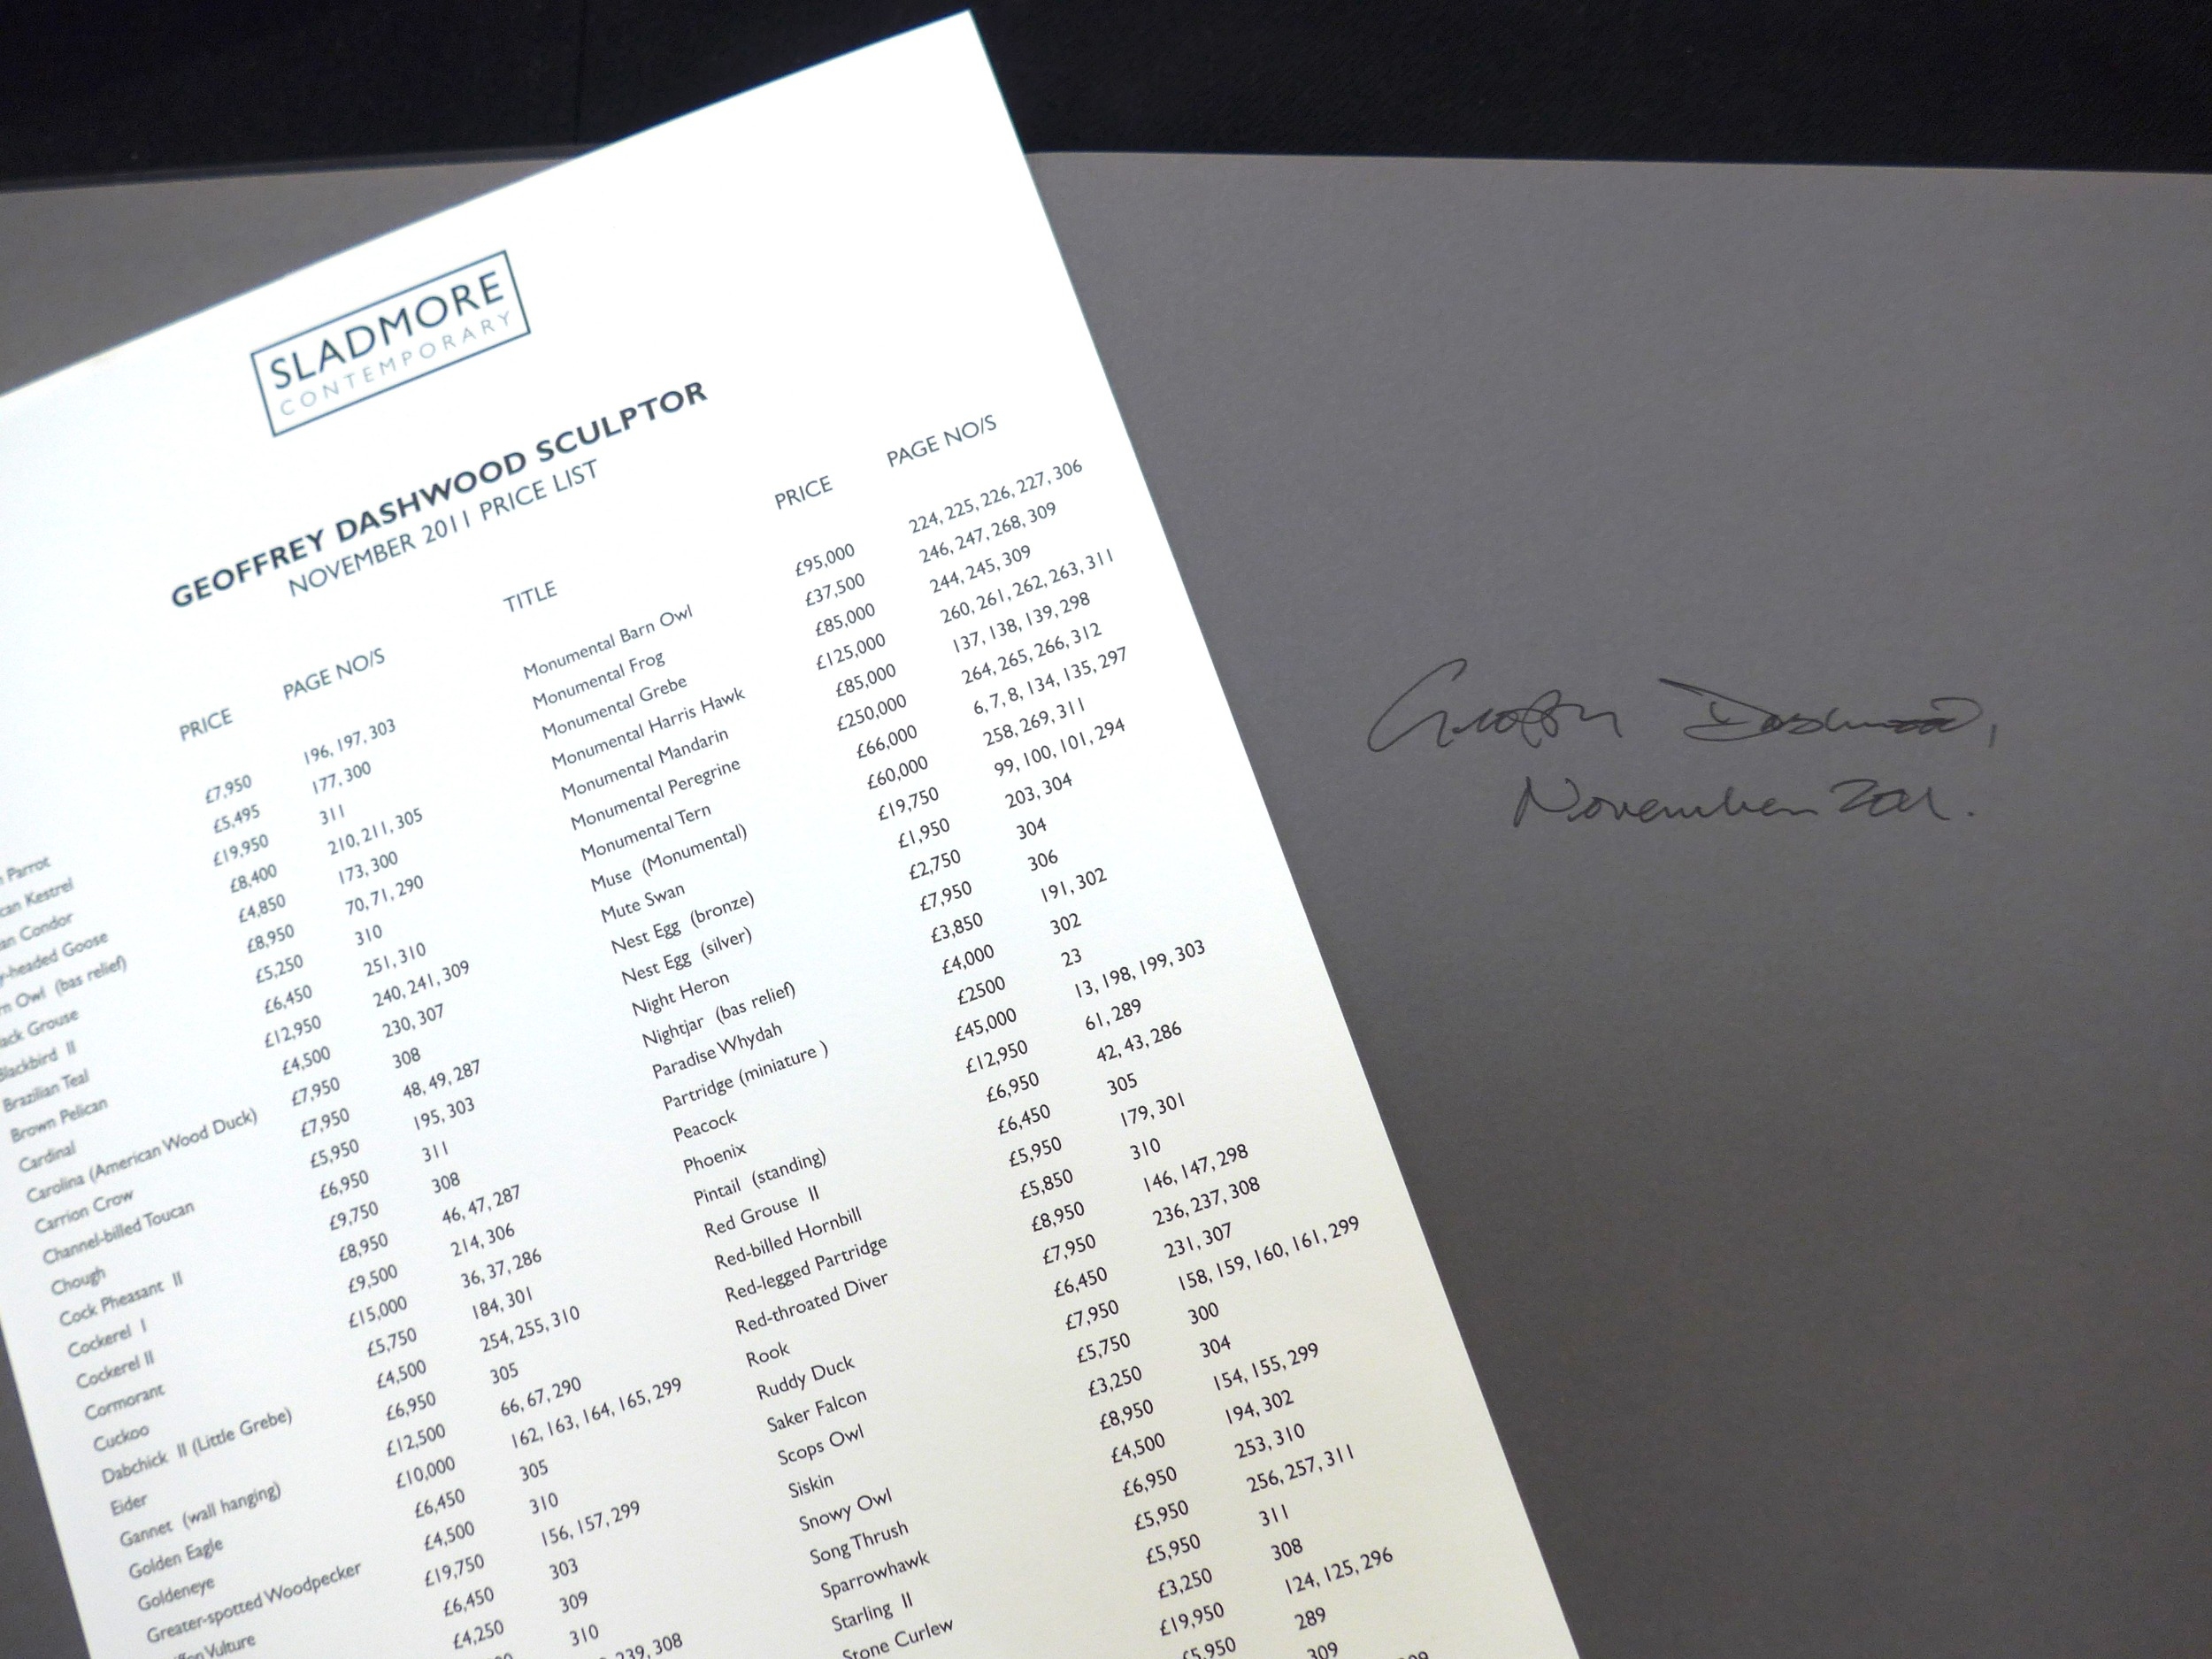 SLADMORE
CONTEMPORARY
GEOFFREY DASHWOOD SCULPTOR
NOVEMBER 2011 PRICE LIST
PRICE PAGE NO/S
Parrot £7,950 196, 197, 303
Kestrel £5,495 177, 300
Condor £19,950 311
-headed Goose £8,400 210, 211, 305
Owl (bas relief) £4,850 173, 300
Grouse £8,950 70, 71, 290
Blackbird II £5,250 310
Brazilian Teal £6,450 251, 310
Brown Pelican £12,950 240, 241, 309
Cardinal £4,500 230, 307
Carolina (American Wood Duck) £7,950 308
Carrion Crow £7,950 48, 49, 287
Channel-billed Toucan £5,950 195, 303
Chough £6,950 311
Cock Pheasant II £9,750 308
Cockerel I £8,950 46, 47, 287
Cockerel II £9,500 214, 306
Cormorant £15,000 36, 37, 286
Cuckoo £5,750 184, 301
Dabchick II (Little Grebe) £4,500 254, 255, 310
Eider £6,950 305
Gannet (wall hanging) £12,500 66, 67, 290
Golden Eagle £10,000 162, 163, 164, 165, 299
Goldeneye £6,450 305
Greater-spotted Woodpecker £4,500 310
Vulture £19,750 156, 157, 299
£6,450 303
£4,250 309
310
239, 308
TITLE PRICE PAGE NO/S
Monumental Barn Owl £95,000 224, 225, 226, 227, 306
Monumental Frog £37,500 246, 247, 268, 309
Monumental Grebe £85,000 244, 245, 309
Monumental Harris Hawk £125,000 260, 261, 262, 263, 311
Monumental Mandarin £85,000 137, 138, 139, 298
Monumental Peregrine £250,000 264, 265, 266, 312
Monumental Tern £66,000 6, 7, 8, 134, 135, 297
Muse (Monumental) £60,000 258, 269, 311
Mute Swan £19,750 99, 100, 101, 294
Nest Egg (bronze) £1,950 203, 304
Nest Egg (silver) £2,750 304
Night Heron £7,950 306
Nightjar (bas relief) £3,850 191, 302
Paradise Whydah £4,000 302
Partridge (miniature ) £2500 23
Peacock £45,000 13, 198, 199, 303
Phoenix £12,950 61, 289
Pintail (standing) £6,950 42, 43, 286
Red Grouse II £6,450 305
Red-billed Hornbill £5,950 179, 301
Red-legged Partridge £5,850 310
Red-throated Diver £8,950 146, 147, 298
Rook £7,950 236, 237, 308
Ruddy Duck £6,450 231, 307
Saker Falcon £7,950 158, 159, 160, 161, 299
Scops Owl £5,750 300
Siskin £3,250 304
Snowy Owl £8,950 154, 155, 299
Song Thrush £4,500 194, 302
Sparrowhawk £6,950 253, 310
Starling II £5,950 256, 257, 311
Stone Curlew £5,950 311
£3,250 308
£19,950 124, 125, 296
£5,950 289
309
Geoffrey Dashwood,
November 2011.